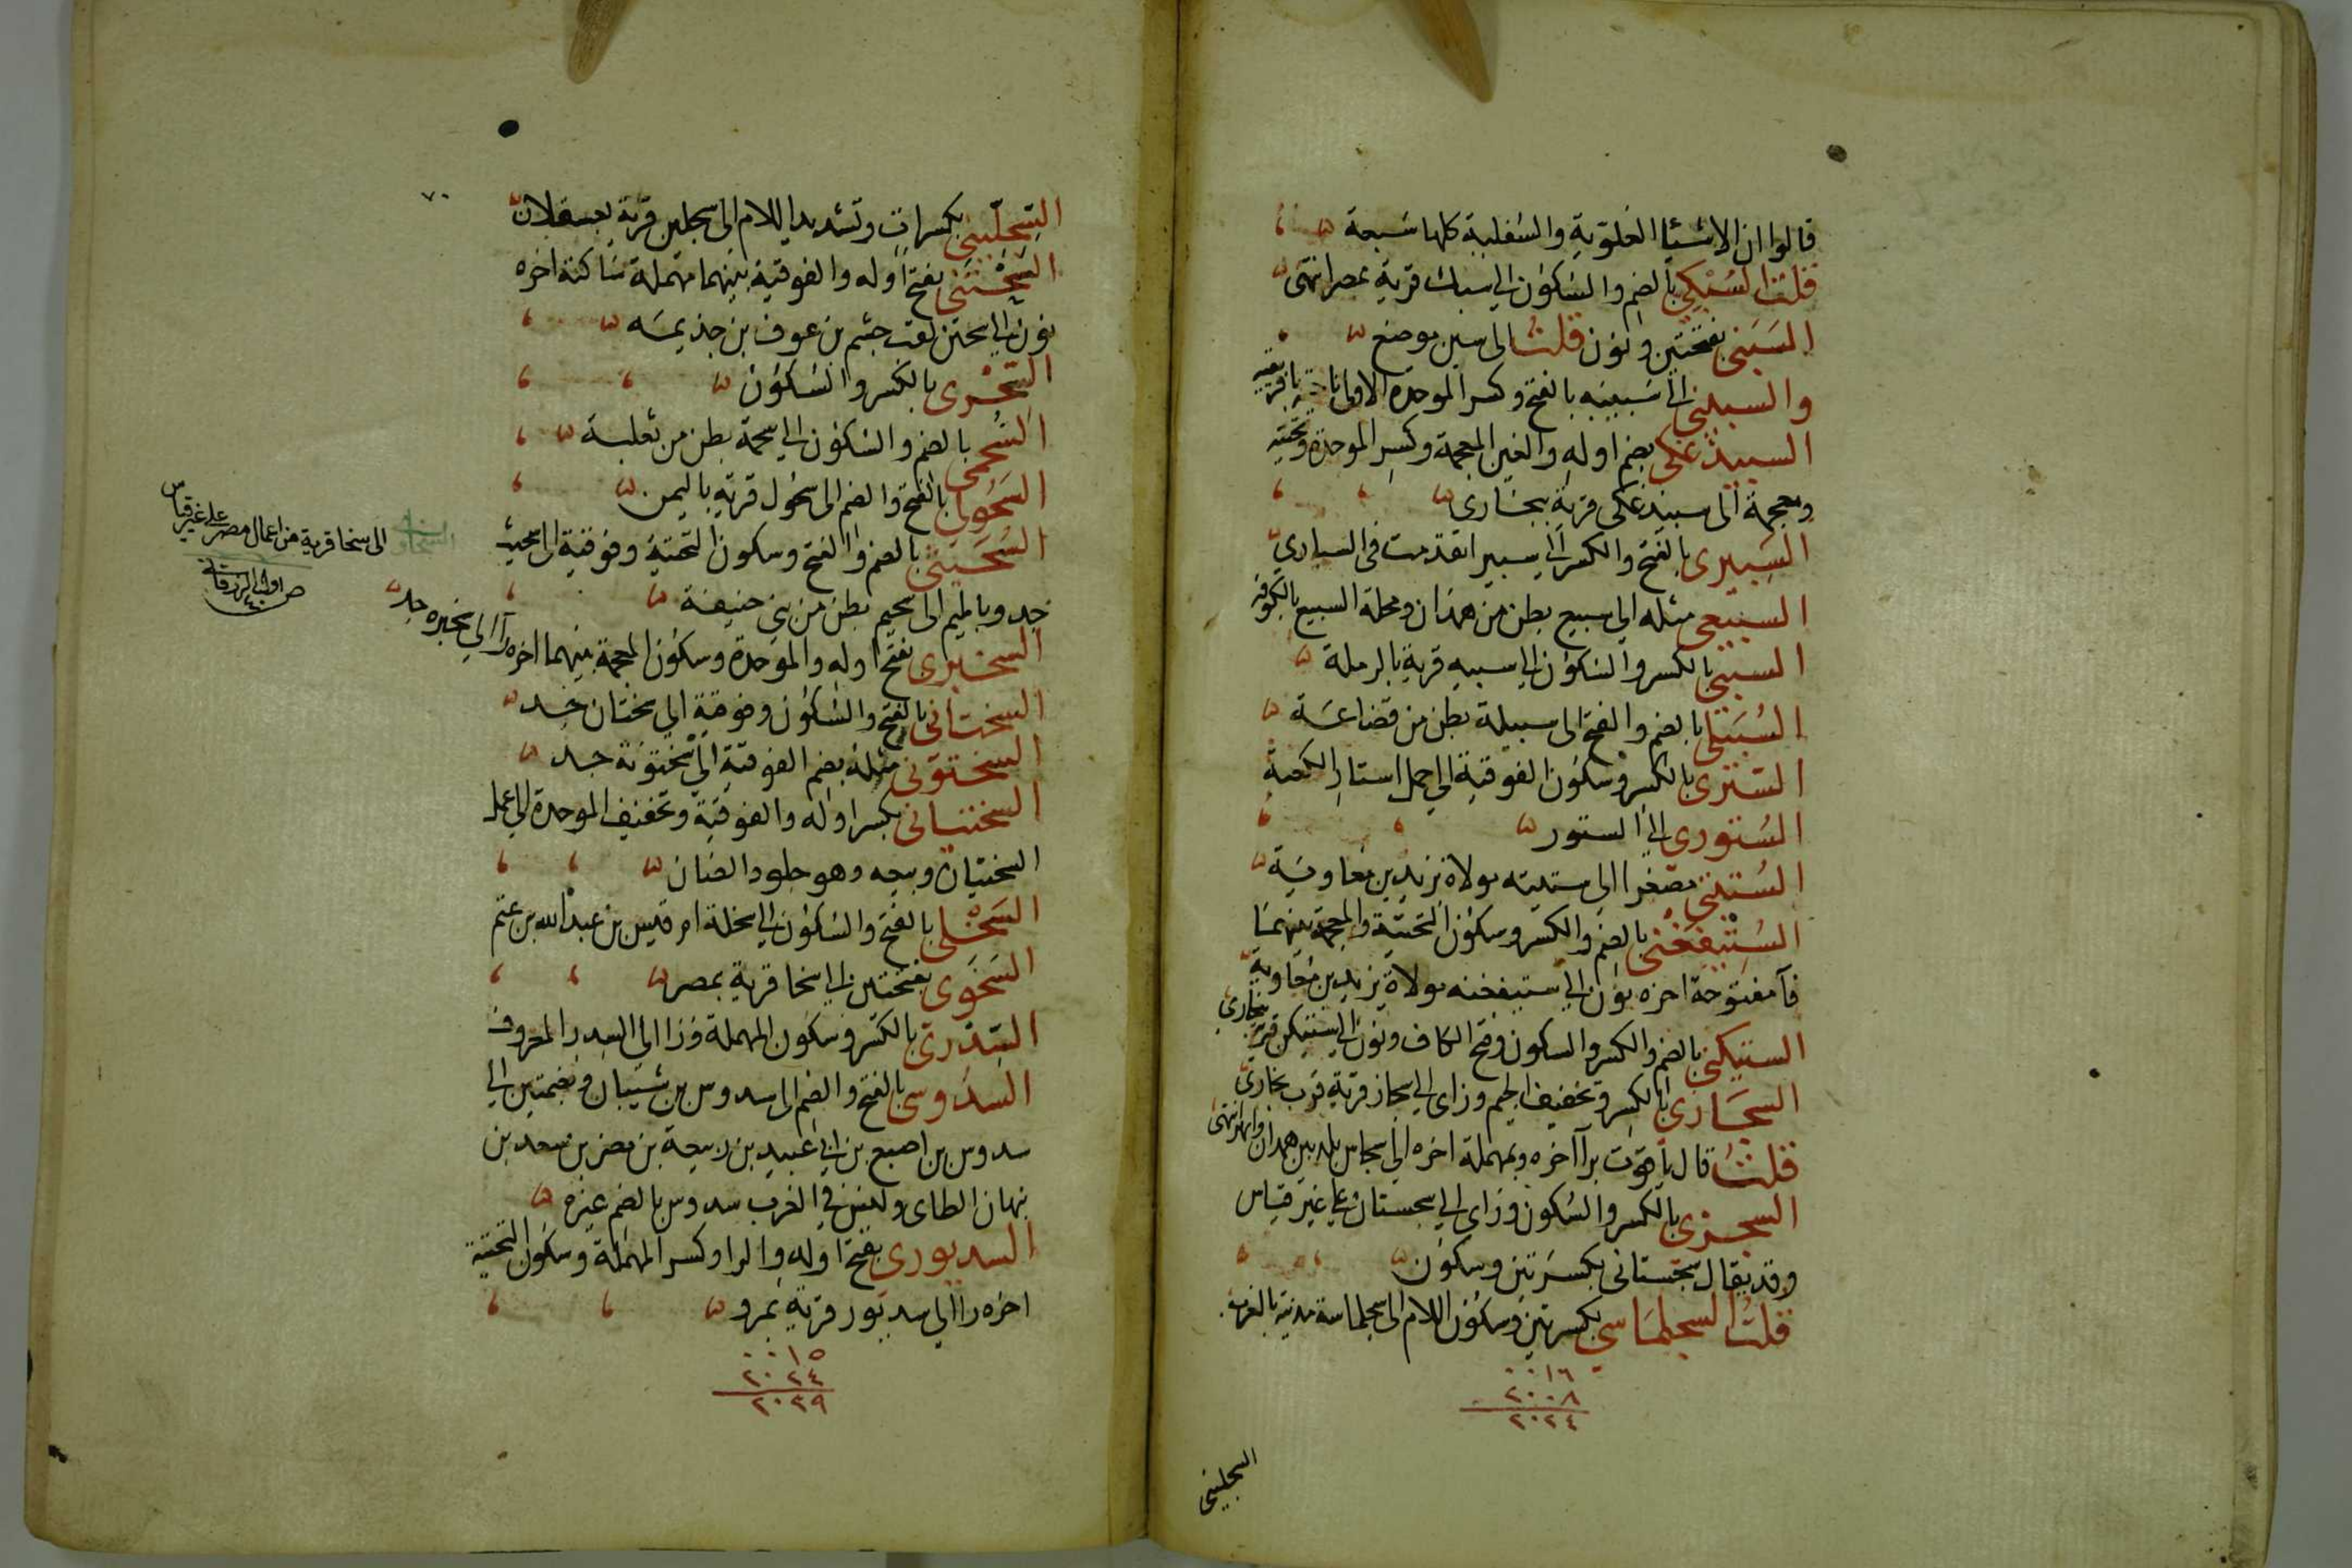 قالوا ان الاشيا العلوية والسفلية كلها سبعة
قلت السبكي بالضم والسكون الى سبك قرية بمصر انتهى
السبنى بفتحتين ونون قلت الى سبن موضع
والسبيني الى سبيبه بالفتح وكسر الموحدة الاولى بافريقيه
السبيذغكى بضم اوله والغين المعجمة وكسر الموحدة وتحتيه
ومعجمة الى سبيذغكى قرية ببخارى
السبيرى بالفتح والكسر الى سبيرا تقدمت فى السبارى
السبيعى مثله الى سبيع بطن من همدان ومحلة السبيع بالكوفه
السبيى بالكسر والسكون الى سبيه قرية بالرملة
السبيلى بالضم والفتح الى سبيلة بطن من قضاعة
السترى بالكسر وسكون الفوقية الى حمل استار الكعبة
الستورى الى الستور
الستيتى مصغرا الى ستيته مولاة يزيد بن معاوية
الستيفغنى بالضم والكسر وسكون التحتية والمعجمة بينهما
فآ مفتوحة اخره نون الى ستيفغنه مولاة يزيد بن معاوية
الستيكنى بالضم والكسر والسكون وفتح الكاف ونون الى ستيكن قرية ببخارى
السجازى بالكسر وتخفيف الجيم وزاى الى سجاز قرية قرب بخارى
قلت قال ياقوت برآ اخره وبمهملة اخره الى سجاس بلد بين همدان وابهر انتهى
السجزى بالكسر والسكون وزاى الى سجستان على غير قياس
وقد يقال سجستانى بكسرتين وسكون
قلت السجلماسي بكسرتين وسكون اللام الى سجلماسة مدينة بالغرب
٠٠١٦
٢٠٠٨
٢٠٢٤
السجلينى
٧٠
السجلينى بكسرات وتشديد اللام الى سجلين قرية بعسقلان
السحتنى بفتح اوله والفوقية بينهما مهملة ساكنة اخره
نون الى سحتن لقب جشم بن عوف بن جذيمه
السحرى بالكسر والسكون
السحمى بالضم والسكون الى سحمة بطن من ثعلبة
السحولى بالفتح والضم الى سحول قرية باليمن
السحيتى بالضم والفتح وسكون التحتية وفوقية الى سحيت
جد وبالميم الى سحيم بطن من بنى حنيفة
السخبرى بفتح اوله والموحدة وسكون المعجمة بينهما اخره رآ الى سخبره جد
السختانى بالفتح والسكون وفوقية الى سختان جد
السختونى مثله بضم الفوقية الى سختونة جد
السختيانى بكسر اوله والفوقية وتخفيف الموحدة الى عمل
السختيان وبيعه وهو جلود الضان
السخلى بالفتح والسكون الى سخلة ام قيس بن عبد الله بن غنم
السخوى بفتحتين الى سخا قرية بمصر
السدرى بالكسر وسكون المهملة ورا الى السدر المعروف
السدوسى بالفتح والضم الى سدوس بن شيبان وبضمتين الى
سدوس بن اصمع بن ابى عبيد بن ربيعة بن نصر بن سعد بن
نبهان الطاى وليس فى العرب سدوس بالضم غيره
السديورى بفتح اوله والرا وكسر المهملة وسكون التحتية
اخره را الى سديور قرية بمرو
٠٠١٥
٢٠٢٤
٢٠٣٩
الى سخا قرية من اعمال مصر على غير قياس